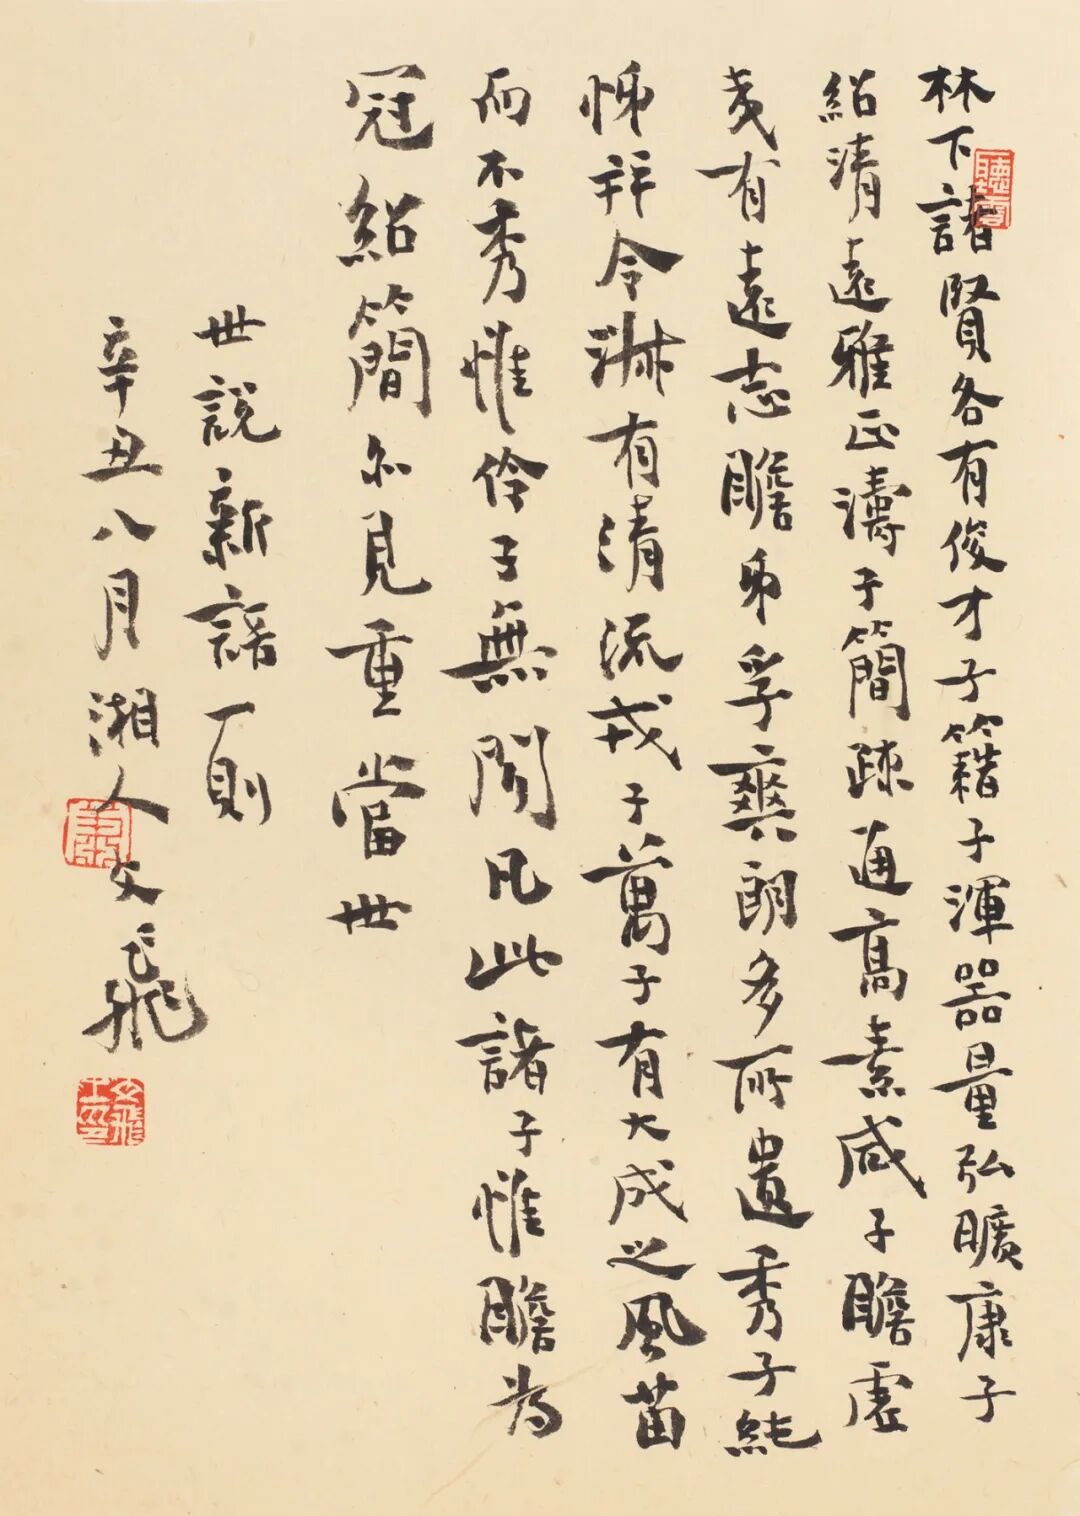 林下諸賢各有俊才子籍子渾器量弘曠康子
紹清遠雅正濤子簡疏通高素咸子瞻虛
夷有遠志瞻弟孚爽朗多所遺秀子純
悌并令淑有清流戎子萬子有大成之風苗
而不秀惟伶子無聞凡此諸子惟瞻為
冠紹簡亦見重當世
世說新語一則
辛丑八月湘人文飛